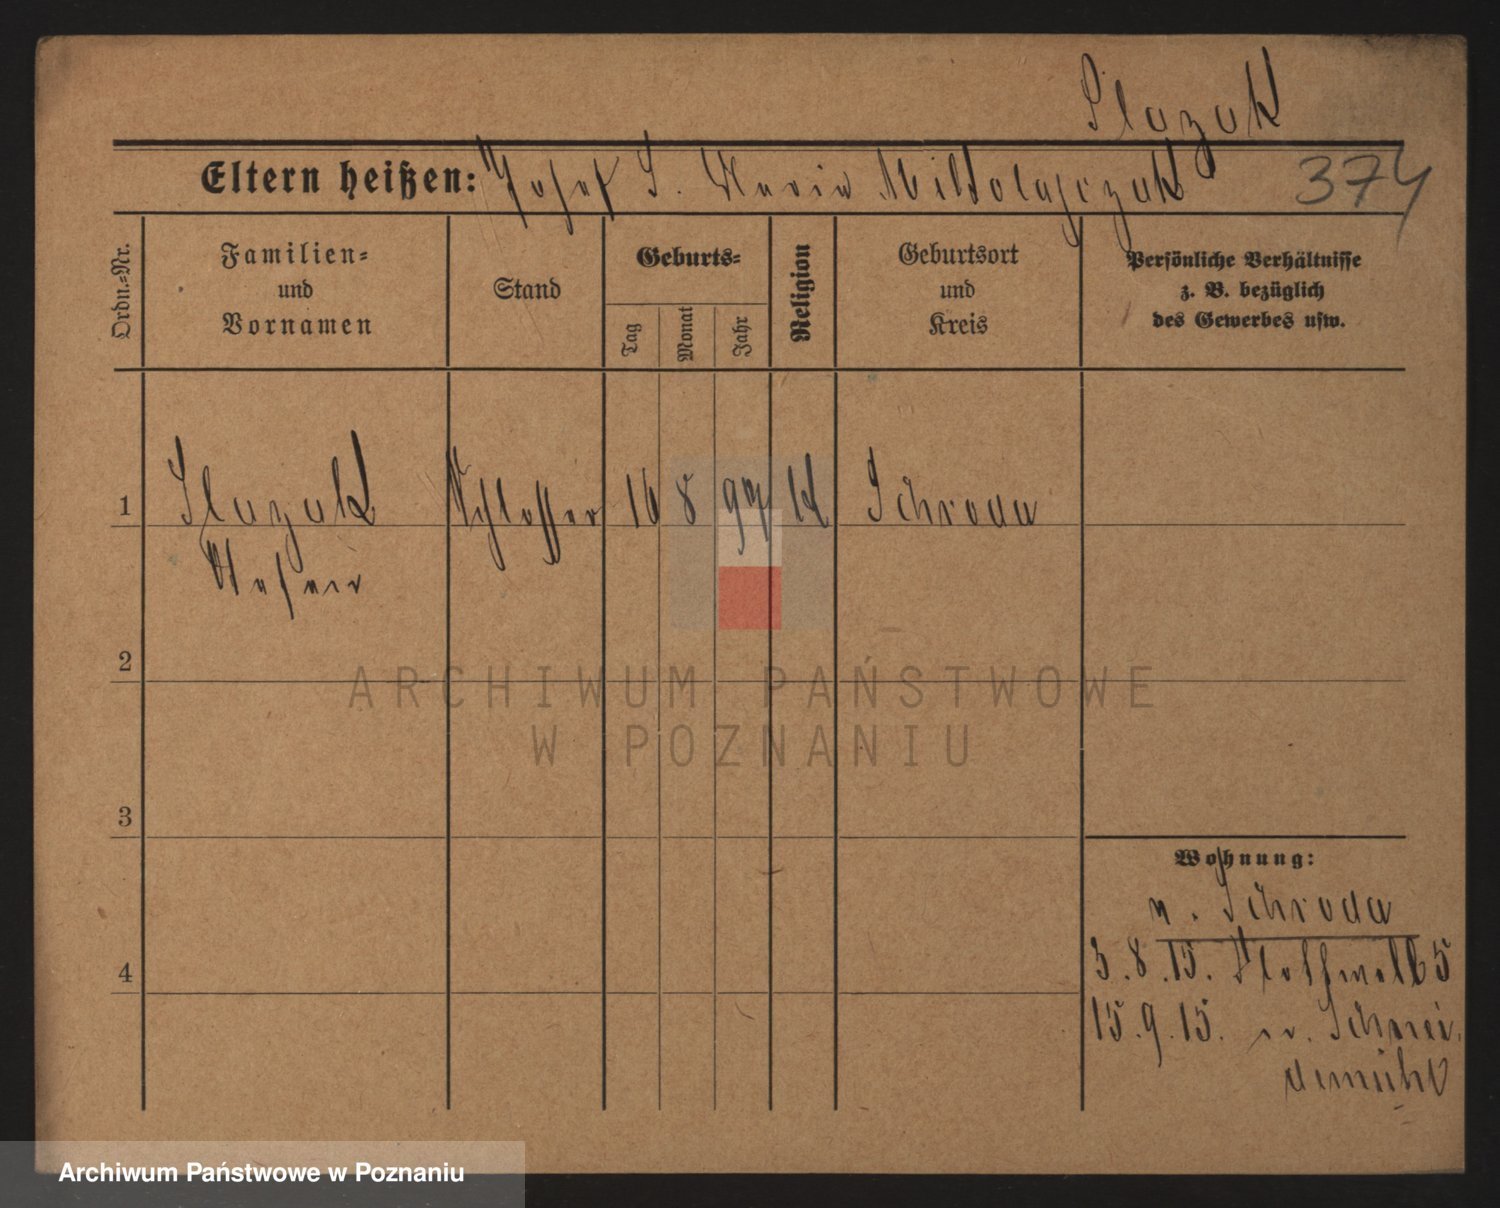 Slazak
Eltern heißen: Josef S. Maria Mikolajczak 374
Ordn.-Nr.
Familien-
und
Vornamen
Stand
Geburts-
Tag
Monat
Jahr
Religion
Geburtsort
und
Kreis
Persönliche Verhältnisse
z. B. bezüglich
des Gewerbes usw.
1 Slazak Schlosser 16 8 97 K Schroda
Stefan
2
3
4
Wohnung:
n. Schroda
3.8.15. 5
15.9.15. n. Schnei-
demühl
ARCHIWUM PAŃSTWOWE
W POZNANIU
Archiwum Państwowe w Poznaniu